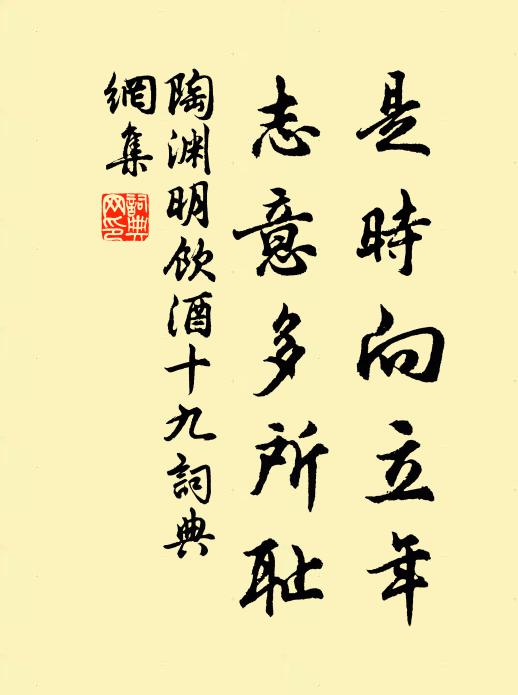 是時向立年
志意多所耻
陶渊明饮酒十九詞典
網集
詞典
网印